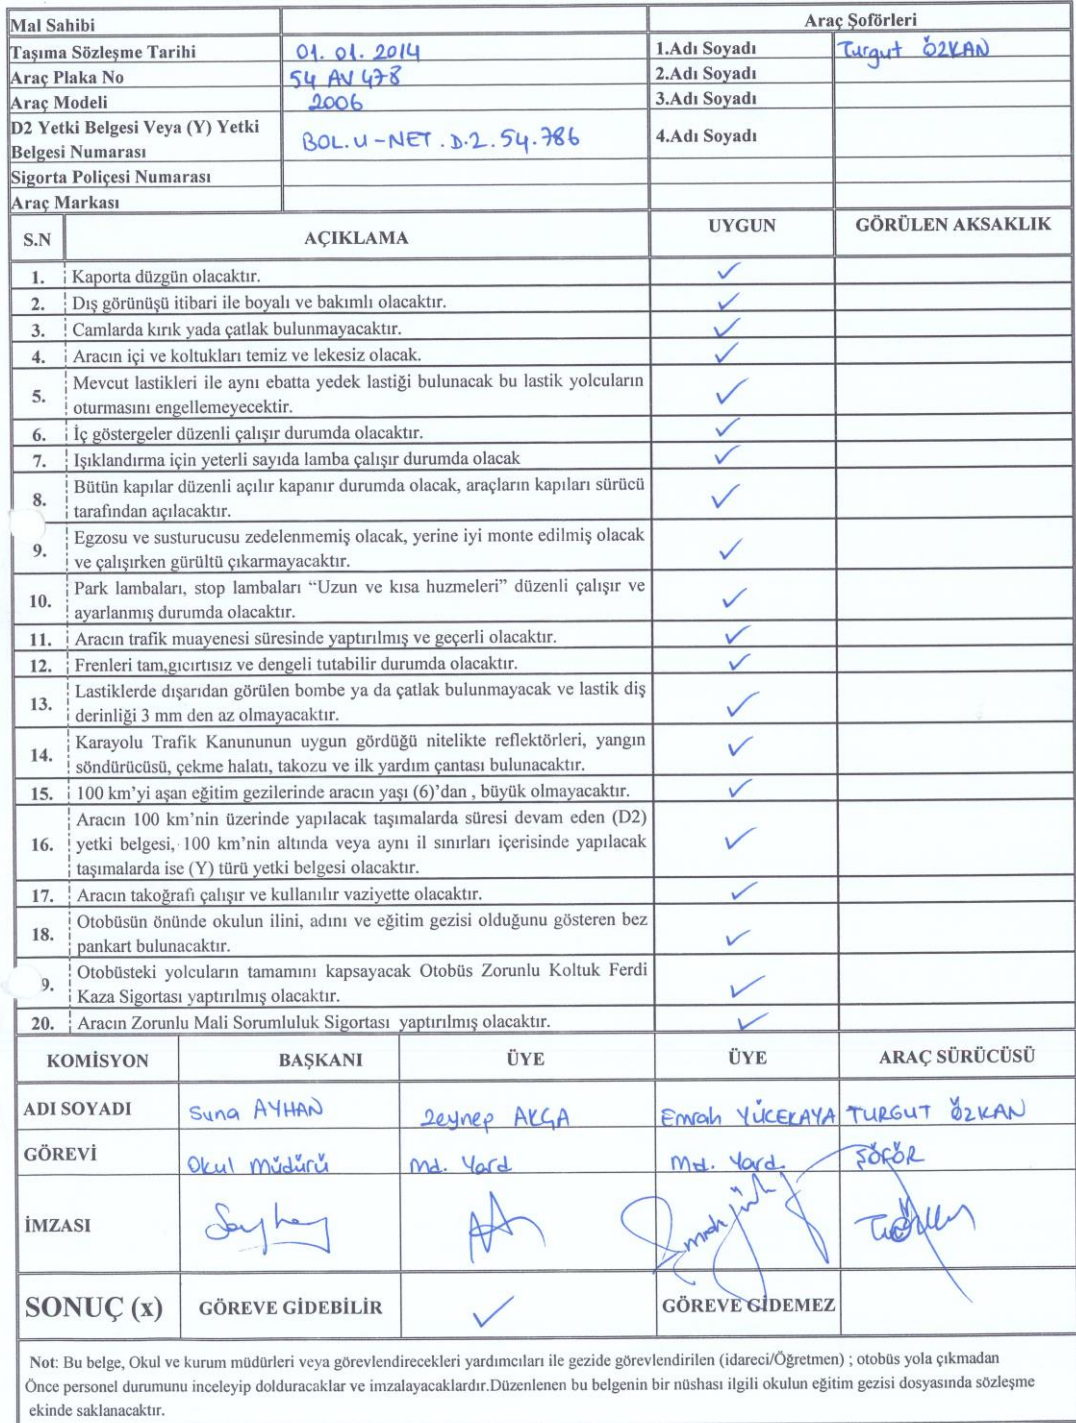 Mal Sahibi Araç Şoförleri
Taşıma Sözleşme Tarihi 01.01.2014 1.Adı Soyadı Turgut ÖZKAN
Araç Plaka No 54 AV 478 2.Adı Soyadı
Araç Modeli 2006 3.Adı Soyadı
D2 Yetki Belgesi Veya (Y) Yetki
Belgesi Numarası BOL.U-NET.D.2.54.786 4.Adı Soyadı
Sigorta Poliçesi Numarası
Araç Markası
S.N AÇIKLAMA UYGUN GÖRÜLEN AKSAKLIK
1. Kaporta düzgün olacaktır. ✓
2. Dış görünüşü itibari ile boyalı ve bakımlı olacaktır. ✓
3. Camlarda kırık yada çatlak bulunmayacaktır. ✓
4. Aracın içi ve koltukları temiz ve lekesiz olacak. ✓
5. Mevcut lastikleri ile aynı ebatta yedek lastiği bulunacak bu lastik yolcuların
oturmasını engellemeyecektir. ✓
6. İç göstergeler düzenli çalışır durumda olacaktır. ✓
7. Işıklandırma için yeterli sayıda lamba çalışır durumda olacak ✓
8. Bütün kapılar düzenli açılır kapanır durumda olacak, araçların kapıları sürücü
tarafından açılacaktır. ✓
9. Egzosu ve susturucusu zedelenmemiş olacak, yerine iyi monte edilmiş olacak
ve çalışırken gürültü çıkarmayacaktır. ✓
10. Park lambaları, stop lambaları “Uzun ve kısa huzmeleri” düzenli çalışır ve
ayarlanmış durumda olacaktır. ✓
11. Aracın trafik muayenesi süresinde yaptırılmış ve geçerli olacaktır. ✓
12. Frenleri tam,gıcırtısız ve dengeli tutabilir durumda olacaktır. ✓
13. Lastiklerde dışarıdan görülen bombe ya da çatlak bulunmayacak ve lastik diş
derinliği 3 mm den az olmayacaktır. ✓
14. Karayolu Trafik Kanununun uygun gördüğü nitelikte reflektörleri, yangın
söndürücüsü, çekme halatı, takozu ve ilk yardım çantası bulunacaktır. ✓
15. 100 km’yi aşan eğitim gezilerinde aracın yaşı (6)’dan , büyük olmayacaktır. ✓
16. Aracın 100 km’nin üzerinde yapılacak taşımalarda süresi devam eden (D2)
yetki belgesi, 100 km’nin altında veya aynı il sınırları içerisinde yapılacak
taşımalarda ise (Y) türü yetki belgesi olacaktır. ✓
17. Aracın takoğrafı çalışır ve kullanılır vaziyette olacaktır. ✓
18. Otobüsün önünde okulun ilini, adını ve eğitim gezisi olduğunu gösteren bez
pankart bulunacaktır. ✓
9. Otobüsteki yolcuların tamamını kapsayacak Otobüs Zorunlu Koltuk Ferdi
Kaza Sigortası yaptırılmış olacaktır. ✓
20. Aracın Zorunlu Mali Sorumluluk Sigortası yaptırılmış olacaktır. ✓
KOMİSYON BAŞKANI ÜYE ÜYE ARAÇ SÜRÜCÜSÜ
ADI SOYADI Suna AYHAN Zeynep AKÇA Emrah YÜCEKAYA TURGUT ÖZKAN
GÖREVİ Okul Müdürü Md. Yard Md. Yard. ŞÖFÖR
İMZASI
SONUÇ (x) GÖREVE GİDEBİLİR ✓ GÖREVE GİDEMEZ
Not: Bu belge, Okul ve kurum müdürleri veya görevlendirecekleri yardımcıları ile gezide görevlendirilen (idareci/Öğretmen) ; otobüs yola çıkmadan
Önce personel durumunu inceleyip dolduracaklar ve imzalayacaklardır.Düzenlenen bu belgenin bir nüshası ilgili okulun eğitim gezisi dosyasında sözleşme
ekinde saklanacaktır.